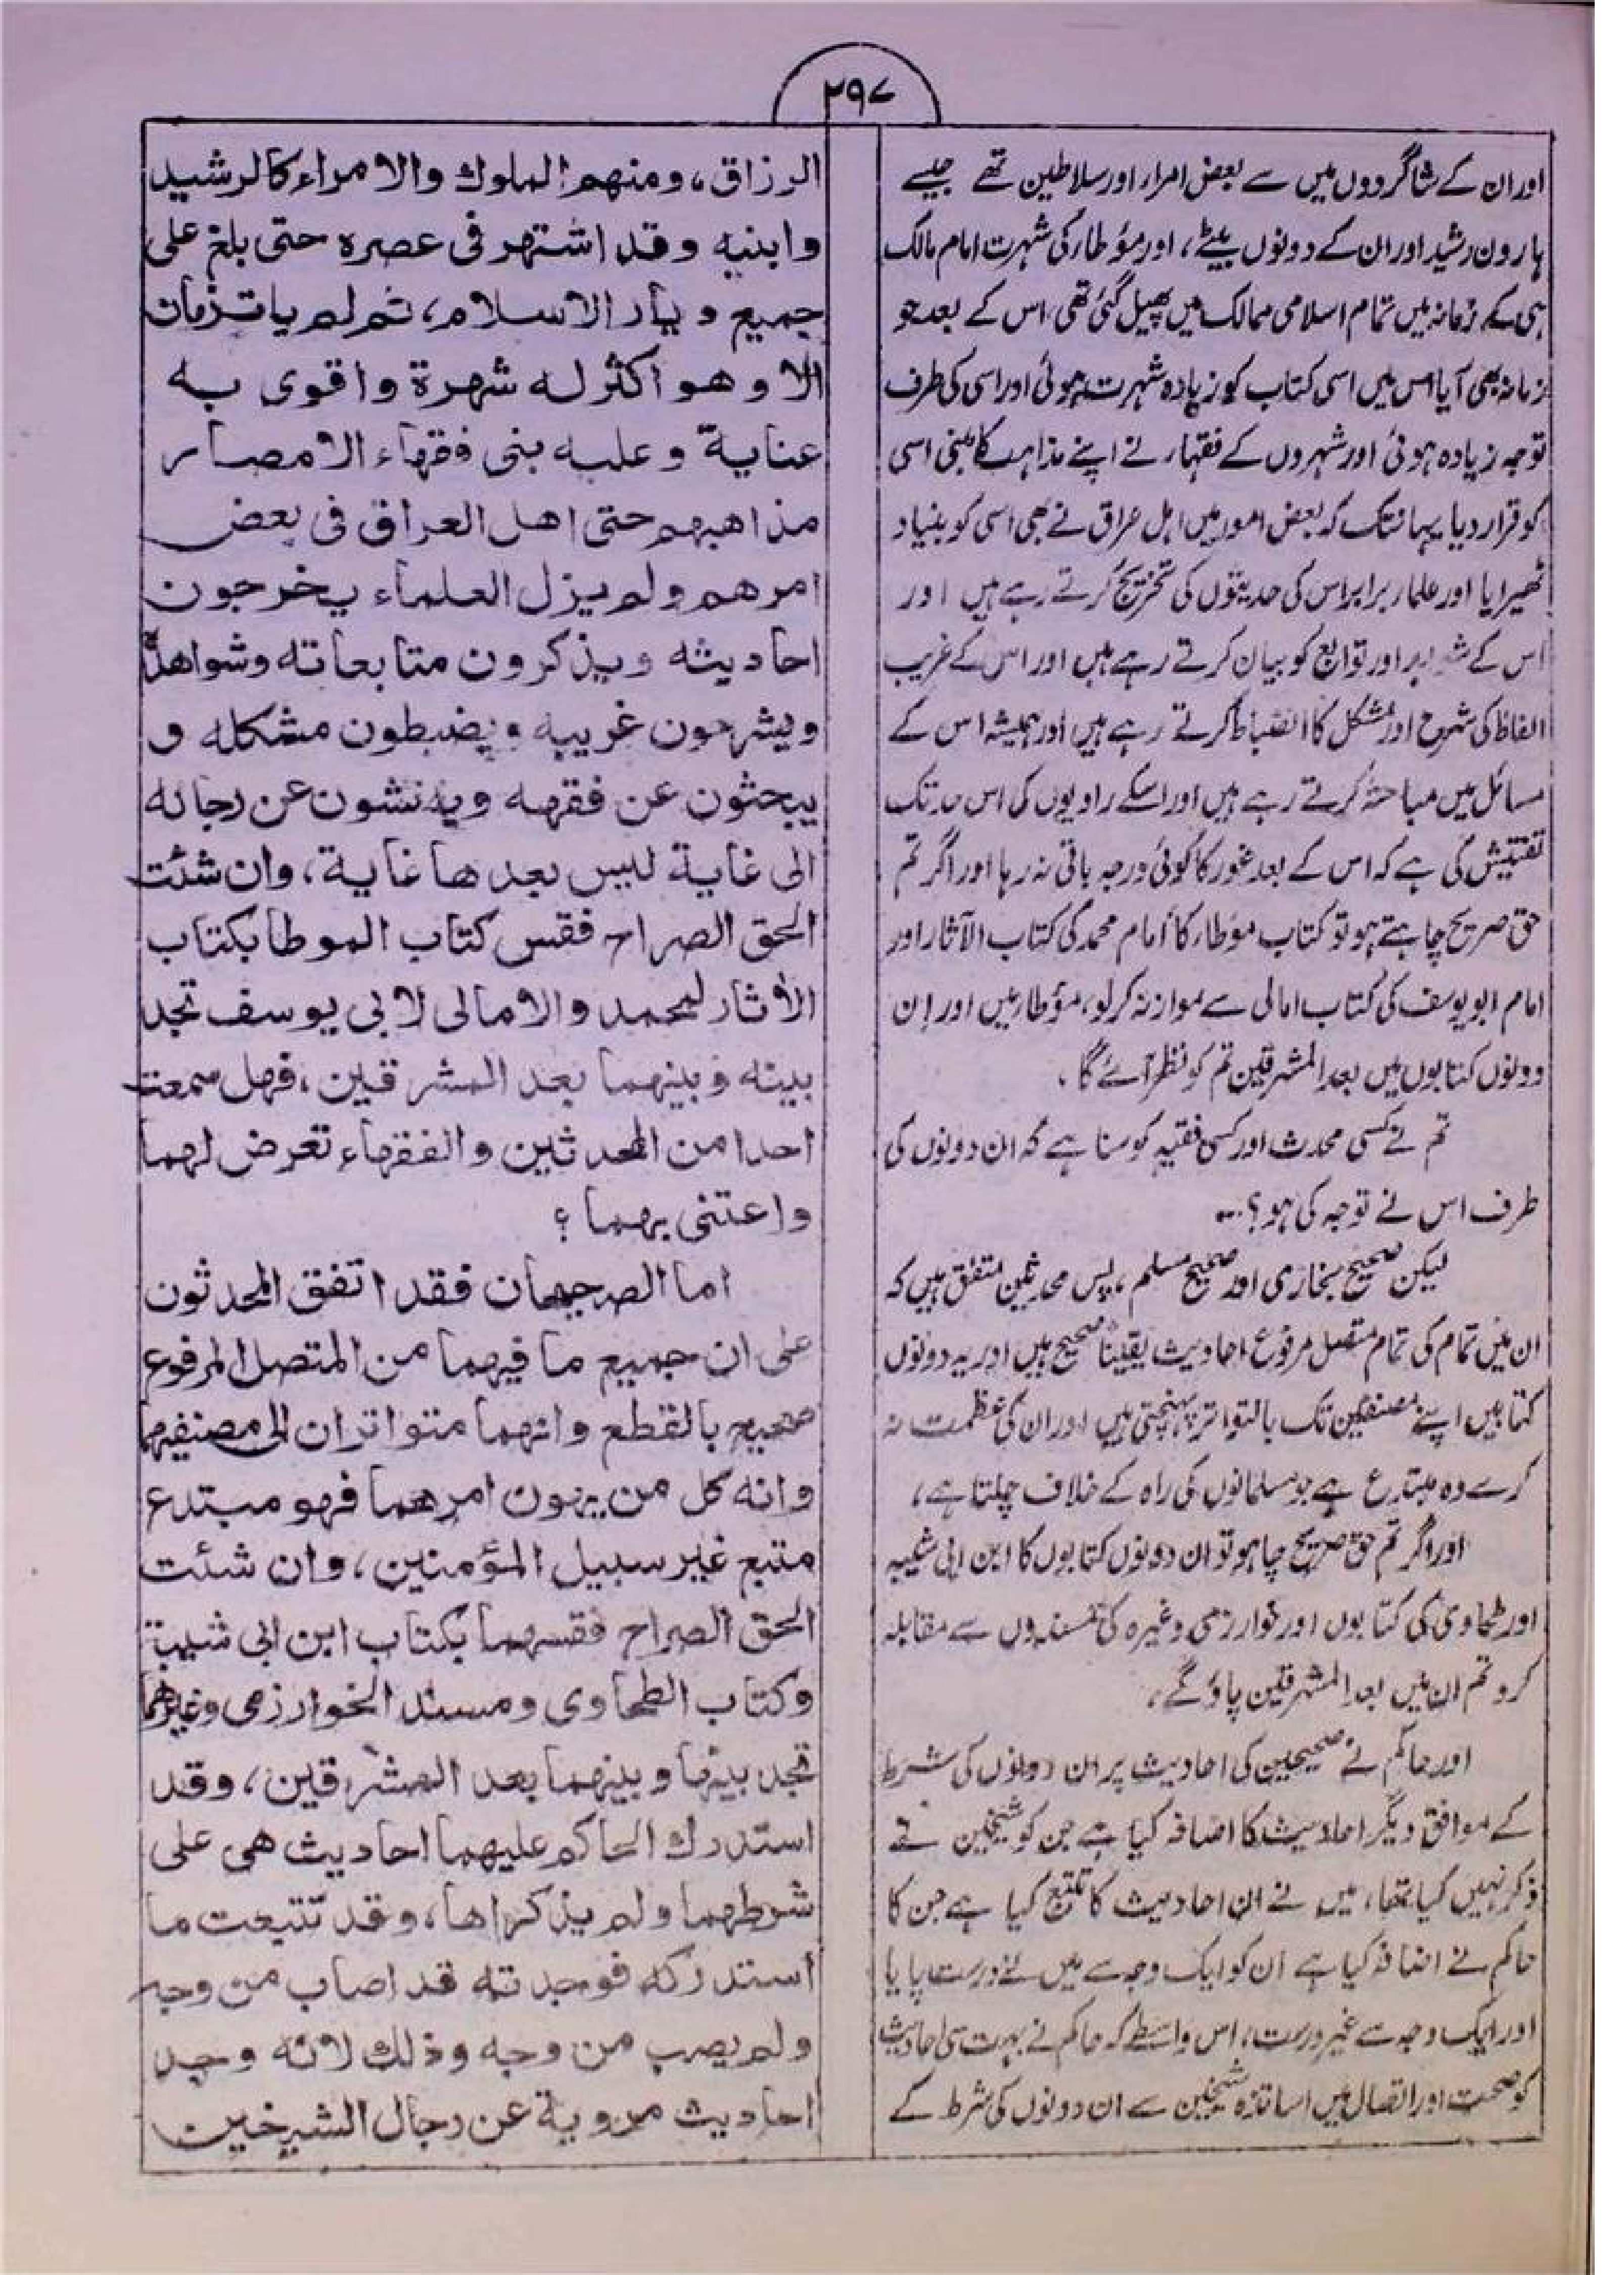 ۲۹۷
اور ان کے شاگردوں میں سے بعض امراء اور سلاطین تھے جیسے
ہارون رشید اور ان کے دونوں بیٹے، اور مؤطاء کی شہرت امام مالک
ہی کے زمانہ میں تمام اسلامی ممالک میں پھیل گئی تھی، اس کے بعد جو
زمانہ بھی آیا اس میں اسی کتاب کو زیادہ شہرت ہوئی اور اسی کی طرف
توجہ زیادہ ہوئی اور شہروں کے فقہاء نے اپنے مذاہب کا مبنی اسی
کو قرار دیا یہانتک کہ بعض امور میں اہل عراق نے بھی اسی کو بنیاد
ٹھیرایا اور علماء برابر اس کی حدیثوں کی تخریج کرتے رہے ہیں اور
اس کے شواہد اور توابع کو بیان کرتے رہے ہیں اور اس کے غریب
الفاظ کی شروح اور مشکل کا انضباط کرتے رہے ہیں اور ہمیشہ اس کے
مسائل میں مباحثہ کرتے رہے ہیں اور اسکے راویوں کی اس حد تک
تفتیش کی ہے کہ اس کے بعد غور کا کوئی درجہ باقی نہ رہا اور اگر تم
حق صریح چاہتے ہو تو کتاب مؤطاء کا امام محمد کی کتاب الآثار اور
امام ابو یوسف کی کتاب امالی سے موازنہ کر لو، مؤطاء میں اور ان
دونوں کتابوں میں بعد المشرقین تم کو نظر آئے گا،
تم نے کسی محدث اور کسی فقیہ کو سنا ہے کہ ان دونوں کی
طرف اس نے توجہ کی ہو؟...
لیکن صحیح بخاری اور صحیح مسلم، پس محدثین متفق ہیں کہ
ان میں تمام کی تمام متصل مرفوع احادیث یقیناً صحیح ہیں اور یہ دونوں
کتابیں اپنے مصنفین تک بالتواتر پہنچتی ہیں اور ان کی عظمت نہ
کرے وہ مبتدع ہے جو مسلمانوں کی راہ کے خلاف چلتا ہے،
اور اگر تم حق صریح چاہو تو ان دونوں کتابوں کا ابن ابی شیبہ
اور طحاوی کی کتابوں اور خوارزمی وغیرہ کی مسندوں سے مقابلہ
کرو تم ان میں بعد المشرقین پاؤ گے،
اور حاکم نے صحیحین کی احادیث پر ان دونوں کی شرط
کے موافق دیگر احادیث کا اضافہ کیا ہے جن کو شیخین نے
ذکر نہیں کیا تھا، میں نے ان احادیث کا تتبع کیا ہے جن کا
حاکم نے اضافہ کیا ہے ان کو ایک وجہ سے میں نے درست پایا
اور ایک وجہ سے غیر درست، اس واسطے کہ حاکم نے بہت سی احادیث
کو صحت اور اتصال میں اساتذہ شیخین سے ان دونوں کی شرط کے
الرزاق، ومنهم الملوك والامراء كالرشيد
وابنيه وقد اشتهر فى عصره حتى بلغ على
جميع ديار الاسلام، ثم لم يات زمان
الا وهو اكثر له شهرة واقوى به
عناية وعليه بنى فقهاء الامصار
مذاهبهم حتى اهل العراق فى بعض
امرهم ولم يزل العلماء يخرجون
احاديثه ويذكرون متابعاته وشواهدهٗ
ويشرحون غريبه ويضبطون مشكله و
يبحثون عن فقهه ويفتشون عن رجاله
الى غاية ليس بعدها غاية، وان شئت
الحق الصراح فقس كتاب الموطا بكتاب
الآثار لمحمد والامالى لابى يوسف تجد
بينه وبينهما بعد المشرقين، فهل سمعت
احدا من المحدثين والفقهاء تعرض لهما
واعتنى بهما؟
اما الصحيحان فقد اتفق المحدثون
على ان جميع ما فيهما من المتصل المرفوع
صحيح بالقطع وانهما متواتران الى مصنفيهما
وانه كل من يهون امرهما فهو مبتدع
متبع غير سبيل المؤمنين، وان شئت
الحق الصراح فقسهما بكتاب ابن ابى شيبة
وكتاب الطحاوى ومسند الخوارزمى وغيرهما
تجد بينها وبينهما بعد المشرقين، وقد
استدرك الحاكم عليهما احاديث هى على
شرطهما ولم يذكراها، وقد تتبعت ما
استدركه فوجدته قد اصاب من وجه
ولم يصب من وجه وذلك لانه وجد
احاديث مروية عن رجال الشيخين